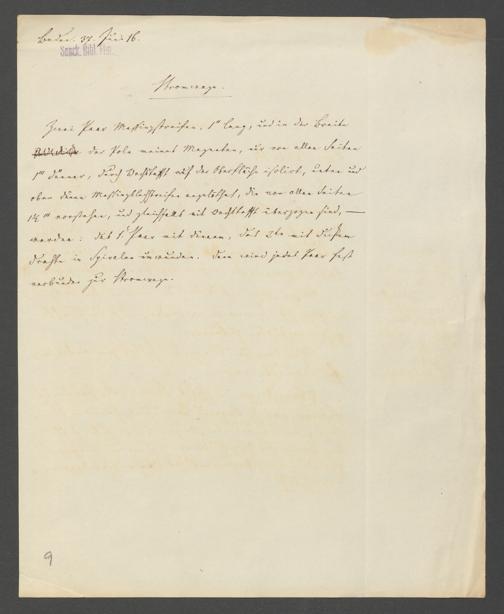 Senck. Bibl. Ffm.
Stromwage.
Zwei Paar Messingstreifen, 1" lang, und in der Breite
der Pole meines Magneten, nur von allen Seiten
1''' dünner, durch Wachstafft auf der Oberfläche isolirt, unten und
oben dünne Messingblechstreifen angelöthet, die von allen Seiten
vorstehen, und gleichfalls mit Wachstafft überzogen sind, —
werden: das 1. Paar mit dünnem, das 2te mit dickem
Drahte in Spiralen umwunden. Dann wird jedes Paar fest
verbunden zur Stromwage.
9